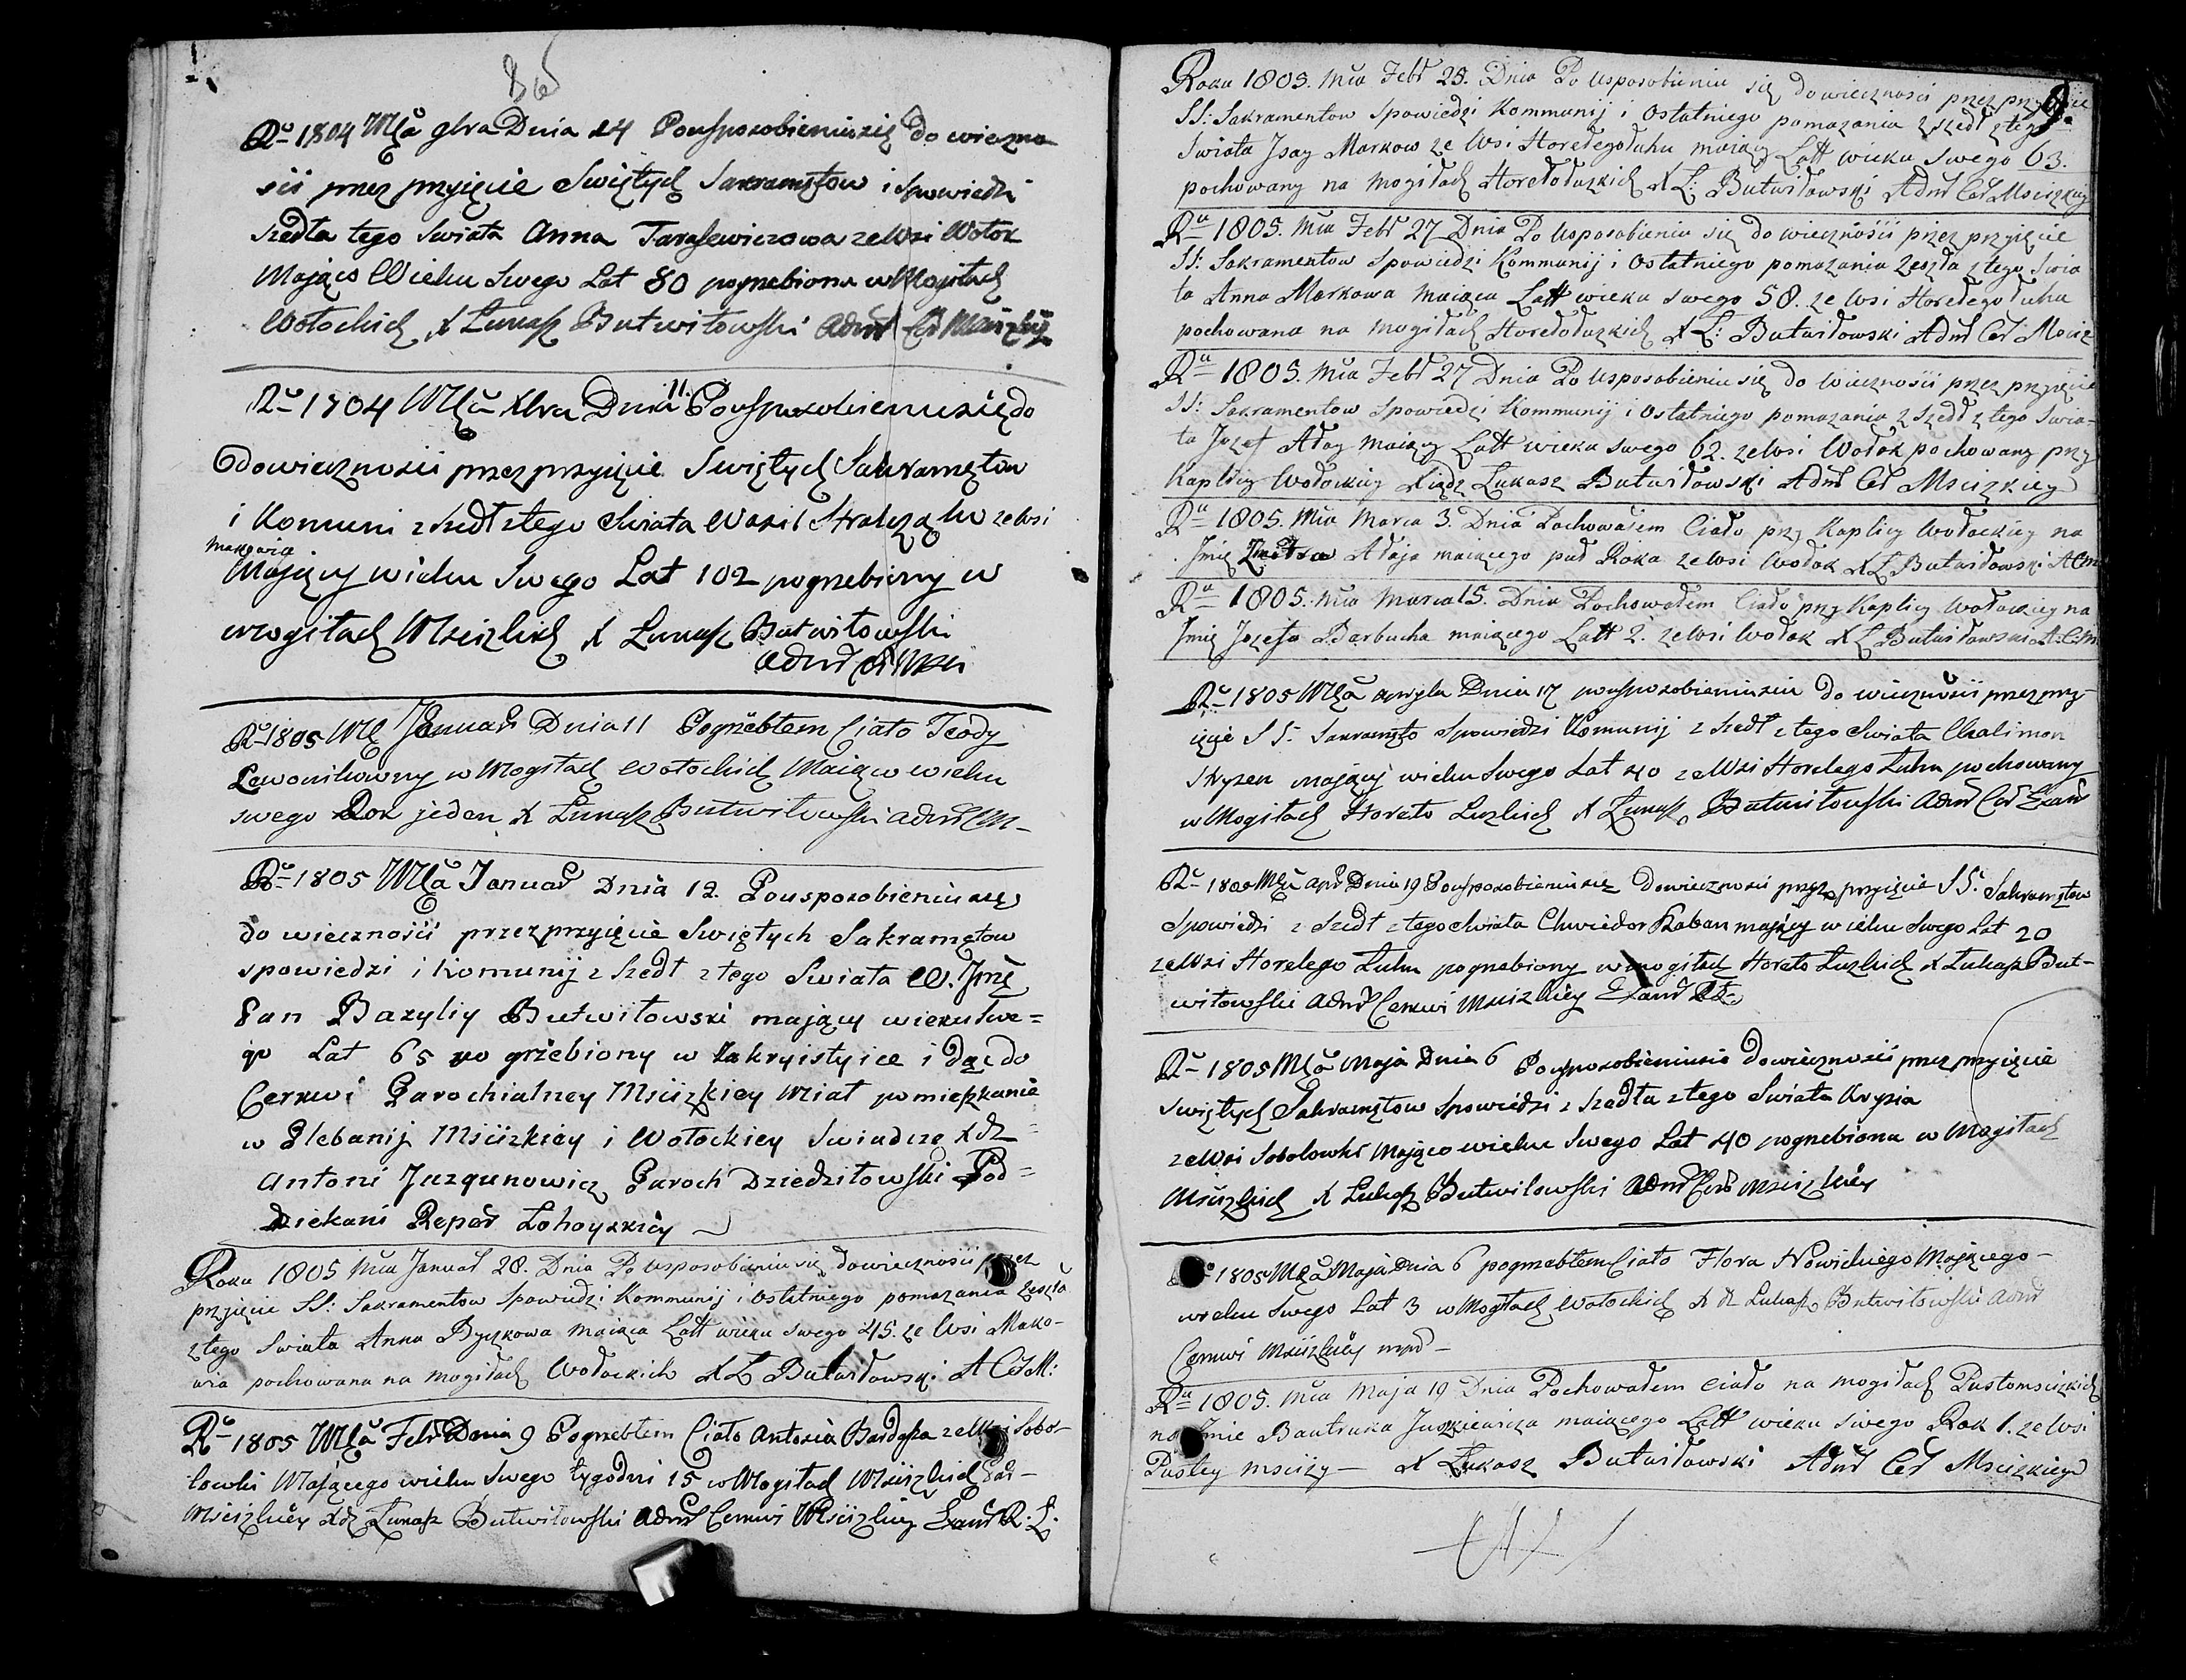 Ru 1804 Mca 9bra Dnia 24 Pousposobieniusię do wieczno
scii przez przyięcie Swiętych Sakramętow i Spowiedzi
szedła tego Swiata Anna Tarasewiczowa ze Wsi Wołok
Mająca Wieku Swego Lat 80 pogrzebiona w Mogiłach
Wołockich X Łukasz Butwiłowski Admr Cer Mscizkiey
Ru 1804 Mca Xbra Dnia 11. Pousposobieniusię do
dowiecznosci przez przyięcie Swiętych Sakramętow
i Komuni z szedł ztego Swiata Wasil ze Wsi
Makowia
Mający wieku Swego Lat 102 pogrzebiony w
mogiłach Mscizkich X Łukasz Butwiłowski
Admr
Ru 1805 Mca Januar Dnia 11 Pogrzebłem Ciało Teody
Lewonikowny w Mogiłach Wołockich Maiąca wieku
swego Rok jeden X Łukasz Butwiłowski Admr C M-
Ru 1805 Mca Januar Dnia 12. Pousposobieniu się
do wiecznoscii przez przyięcie Swiętych Sakramętow
spowiedzi i Komunij z Szedł z tego Swiata W. Jmę
Pan Bazyliy Butwiłowski mający wieku Swe=
go Lat 65 pogrzebiony w Zakryistyice i dąc do
Cerkwi Parochialney Msciizkiey Miał pomieszkanie
w Plebanij Msciizkiey i Wołockiey Swiadczę Xdz
Antoni Juzgunowicz Paroch Dziedziłowski Pod=
dziekani Repar Łohoyzkiey
Roku 1805 Mca Januar 28. Dnia Po Usposobieniu się dowiecznoscii przez
przyięcie SS: Sakramentow Spowiedzi Kommunij i Ostatniego pomazania Zeszła
z tego Swiata Anna Byczkowa maiąca Latt wieku swego 45. ze Wsi Mako-
wia pochowana na mogiłach Wołockich X Ł Butwiłowski A C M:
Ru 1805 Mca Febr Dnia 9 Pogrzebłem Ciało Antosia Bardysza ze Wsi Sobo-
lowki Mającego wieku Swego tygodni 15 w Mogiłach Msciizkich Par-
Msciizkiey Xdz Łukasz Butwiłowski Admr Cerkwi Msciizkiey R. Ł.
9.
Roku 1805. Mca Febr 25. Dnia Po Usposobieniu się do wiecznosci przez przyięcie
SS: Sakramentow Spowiedzi Kommunij i Ostatniego pomazania z szedł z tego
Swiata Jsay Markow ze Wsi Horełegołuhu maiący Latt wieku Swego 63.
pochowany na mogiłach Horełołuzkich X Ł: Butwiłowski Admr Cer Msciizkiey
Ru 1805. Mca Febr 27 Dnia Po Usposobieniu się do wiecznoscii przez przyięcie
SS: Sakramentow Spowiedzi Kommunij i Ostatniego pomazania Zeszła z tego Swia
ta Anna Markowa maiąca Latt wieku swego 58. ze Wsi Horełego łuhu
pochowana na mogiłach Horełołuzkich X Ł: Butwiłowski Admr Cer Msciz
Ru 1805. Mca Febr 27 Dnia Po Usposobieniu się do Wiecznoscii przez przyięcie
SS: Sakramentow Spowiedzi Kommunij i Ostatniego pomazania z szedł z tego Swia-
ta Jozef Aday maiący Latt wieku swego 62. ze Wsi Wołok pochowany przy
Kaplicy Wołockiey Xiądz Łukasz Butwiłowski Admr Cer Msciizkiey
Ru 1805. Mca Marca 3. Dnia Pochowałem Ciało przy Kaplicy Wołockiey na
Jmię Adaja maiącego puł Roku ze Wsi Wołok X Ł Butwiłowski A C M
Ru 1805. Mca Marca 15. Dnia Pochowałem Ciało przy Kaplicy Wołockiey na
Jmię Jozefa Barbucha maiącego Latt 2. ze Wsi Wołok X Ł Butwiłowski A: C: M
Ru 1805 Mca Apryla Dnia 17 pousposobieniusiu do wiecznoscii przez przy-
ięcie SS. Sakramęto Spowiedzi Komunij z szedł z tego Swiata Chalimon
mający wieku Swego Lat 40 ze Wsi Horelego Łuhu pochowany
w Mogiłach Horeło Łuzkich X Łukasz Butwiłowski Admr Cer
Ru 1805 Mca Apr Dnia 19 Pousposobieniusię Dowiecznosci przez przyięcie SS. Sakramętow
Spowiedzi z szedł z tego Swiata Chwiedor Kaban mający wieku Swego Lat 20
ze Wsi Horelego Łuhu pogrzebiony w mogiłach Horeło Łuzkich X Łukasz But-
wiłowski Admr Cerkwi Msciizkiey
Ru 1805 Mca Maja Dnia 6 Pousposobieniusie Dowiecznoscii przez przyięcie
Swiętych Sakramętow Spowiedzi z szedła z tego Swiata Krysia
ze Wsi Sobolowki Mająca wieku Swego Lat 40 pogrzebiona w Mogiłach
Msciizkich X Łukasz Butwiłowski Admr Cer Msciizkiey
1805 Mca Maja Dnia 6 pogrzebłem Ciało Flora Nowickiego Mającego-
wieku Swego Lat 3 w Mogiłach Wołockich X dz Łukasz Butwiłowski Admr
Cerkwi Msciizkiey mpr-
Ru 1805. Mca Maja 19 Dnia Pochowałem Ciało na mogiłach Pustomscizkich
na Jmie Bautruka Juszkiewicza maiącego Latt wieku Swego Rok 1. ze Wsi
Pustey Msciży- X Łukasz Butwiłowski Admr Cer Msciizkiey